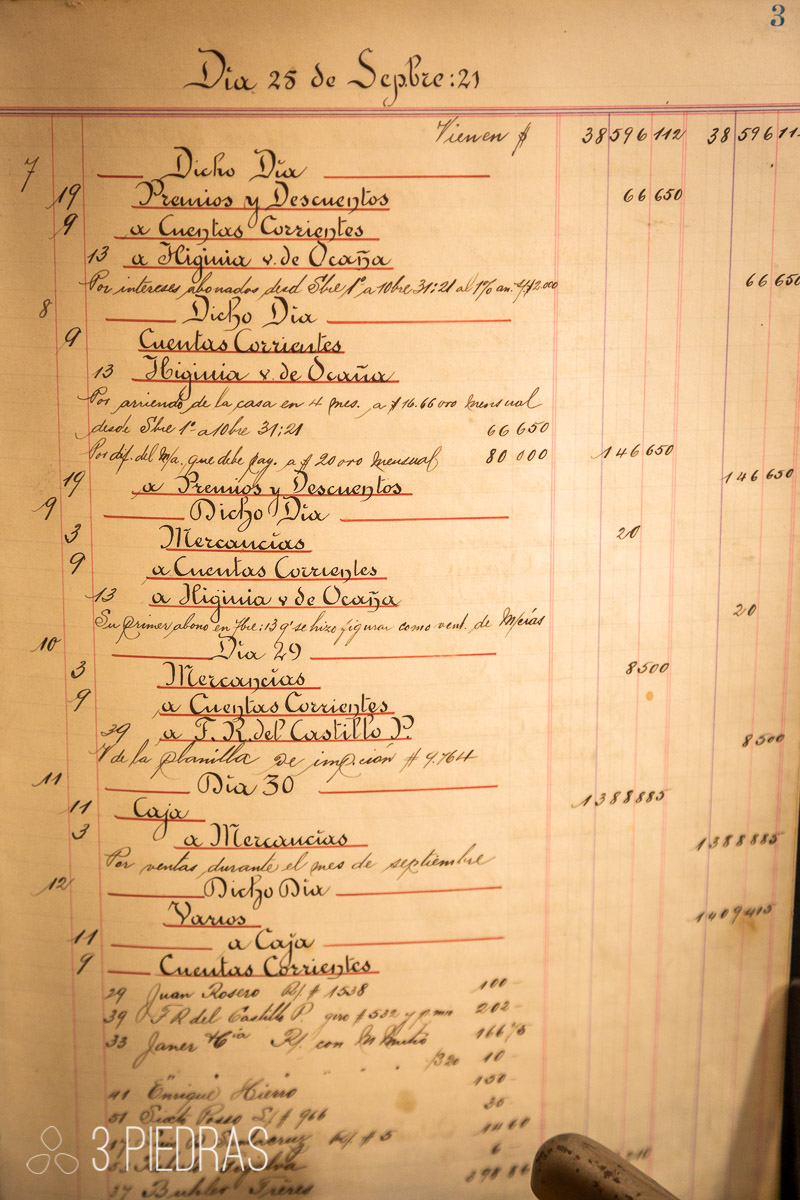 3
Dia 25 de Sepbre:21
Vienen $ 38596112 3859611
7 Dicho Dia
19 Premios y Descuentos 66 650
9 a Cuentas Corrientes
13 a Higinia v. de Ocaña
Por intereses abonados desd Sbre 1º a 10bre 31:21 al 1% an. $2.000 66 650
8 Dicho Dia
9 Cuentas Corrientes
13 Higinia v. de Ocaña
Por arriendo de la casa en 4 mes. a $16.66 oro mensual
desde Sbre 1º a 10bre 31:21 66 650
Por dif. del m/a. que debe pag. a $20 oro mensual 80 000 146 650
19 a Premios y Descuentos 146 650
9 Dicho Dia
3 Mercancías 20
9 a Cuentas Corrientes
13 a Higinia v de Ocaña
Su primer abono en 7bre:13 q' se hizo figurar como vent. de M/cías 20
10 Dia 29
3 Mercancías 8500
9 a Cuentas Corrientes
39 a F. R. del Castillo P.
V de la planilla de imp.ción # 9.764 8500
11 Dia 30
11 Caja 1388885
3 a Mercancías 1388885
Por ventas durante el mes de septiembre
12 Dicho Dia
Varios 1409415
11 a Caja
9 Cuentas Corrientes
29 Juan Rosero R/ # 1538 100-
39 F R del Castillo P. giro # 532 y 202-
33 Janer & Cia R/. con 16675
/320 10-
150-
41 Enrique Hierro 35-
51 Sixto Posso S/ # 966
# 5 6-
37 Buhler Frères
3 PIEDRAS